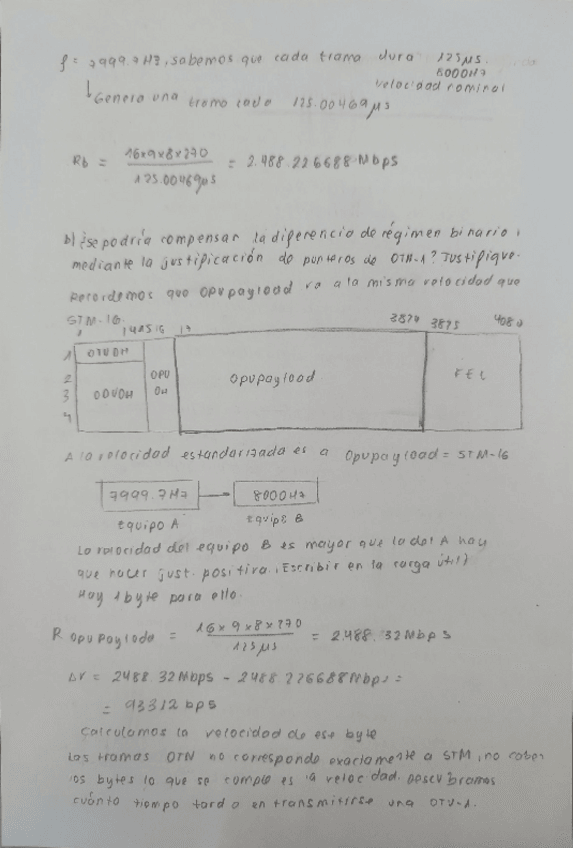 f = 7999.7 Hz, sabemos que cada trama dura 125 µs.
8000Hz
velocidad nominal
Genera una trama cada 125.00469 µs
Rb = 16x9x8x270 / 125.00469µs = 2.488.226688 Mbps
b) ¿Se podría compensar la diferencia de régimen binario,
mediante la justificación de punteros de OTN-1? Justifique.
Recordemos que OPUpayload va a la misma velocidad que
STM-16.
1 14 15 16 17 3824 3825 4080
1 OTUOH
2 OPU OPUpayload FEC
3 ODUOH OH
4
A la velocidad estandarizada es a OPUpayload = STM-16
7999.7Hz 8000Hz
Equipo A Equipo B
La velocidad del equipo B es mayor que la del A hay
que hacer just. positiva. (Escribir en la carga útil)
Hay 1 byte para ello.
R OPUPayloda = 16x9x8x270 / 125 µs = 2.488.32 Mbps
ΔV = 2488.32Mbps - 2488.226688Mbps =
= 93312 bps
Calculamos la velocidad de ese byte
Las tramas OTN no corresponde exactamente a STM, no caben
los bytes lo que se cumple es la velocidad. Descubramos
cuánto tiempo tarda en transmitirse una OTU-1.